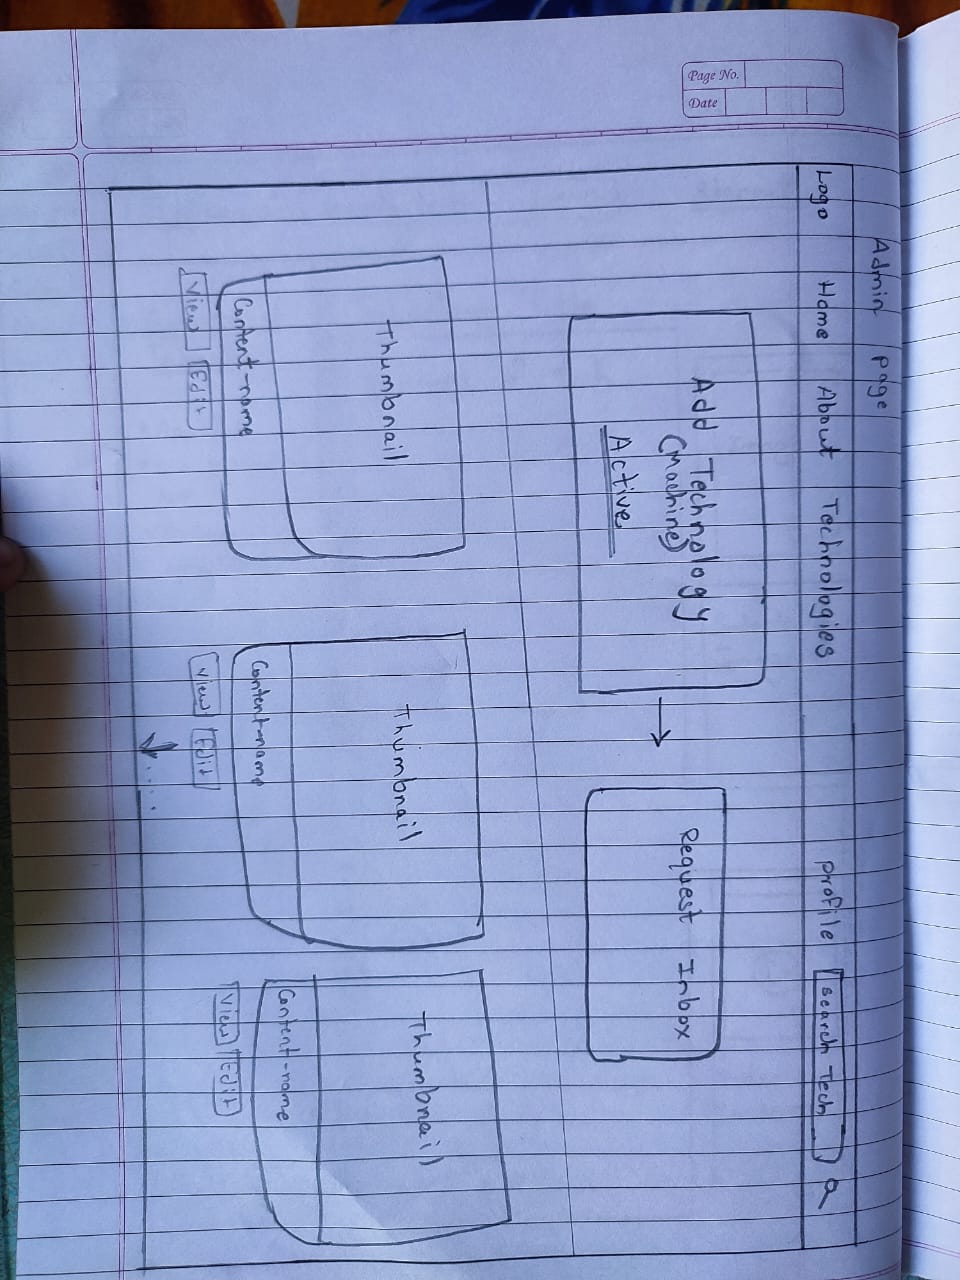 Page No.
Date
Admin page
Logo Home About Technologies profile search Tech
Add Technology
(Machine)
Active
Request Inbox
Thumbnail
Content-name
View Edit
Thumbnail
Content-name
View Edit
Thumbnail
Content-name
View Edit